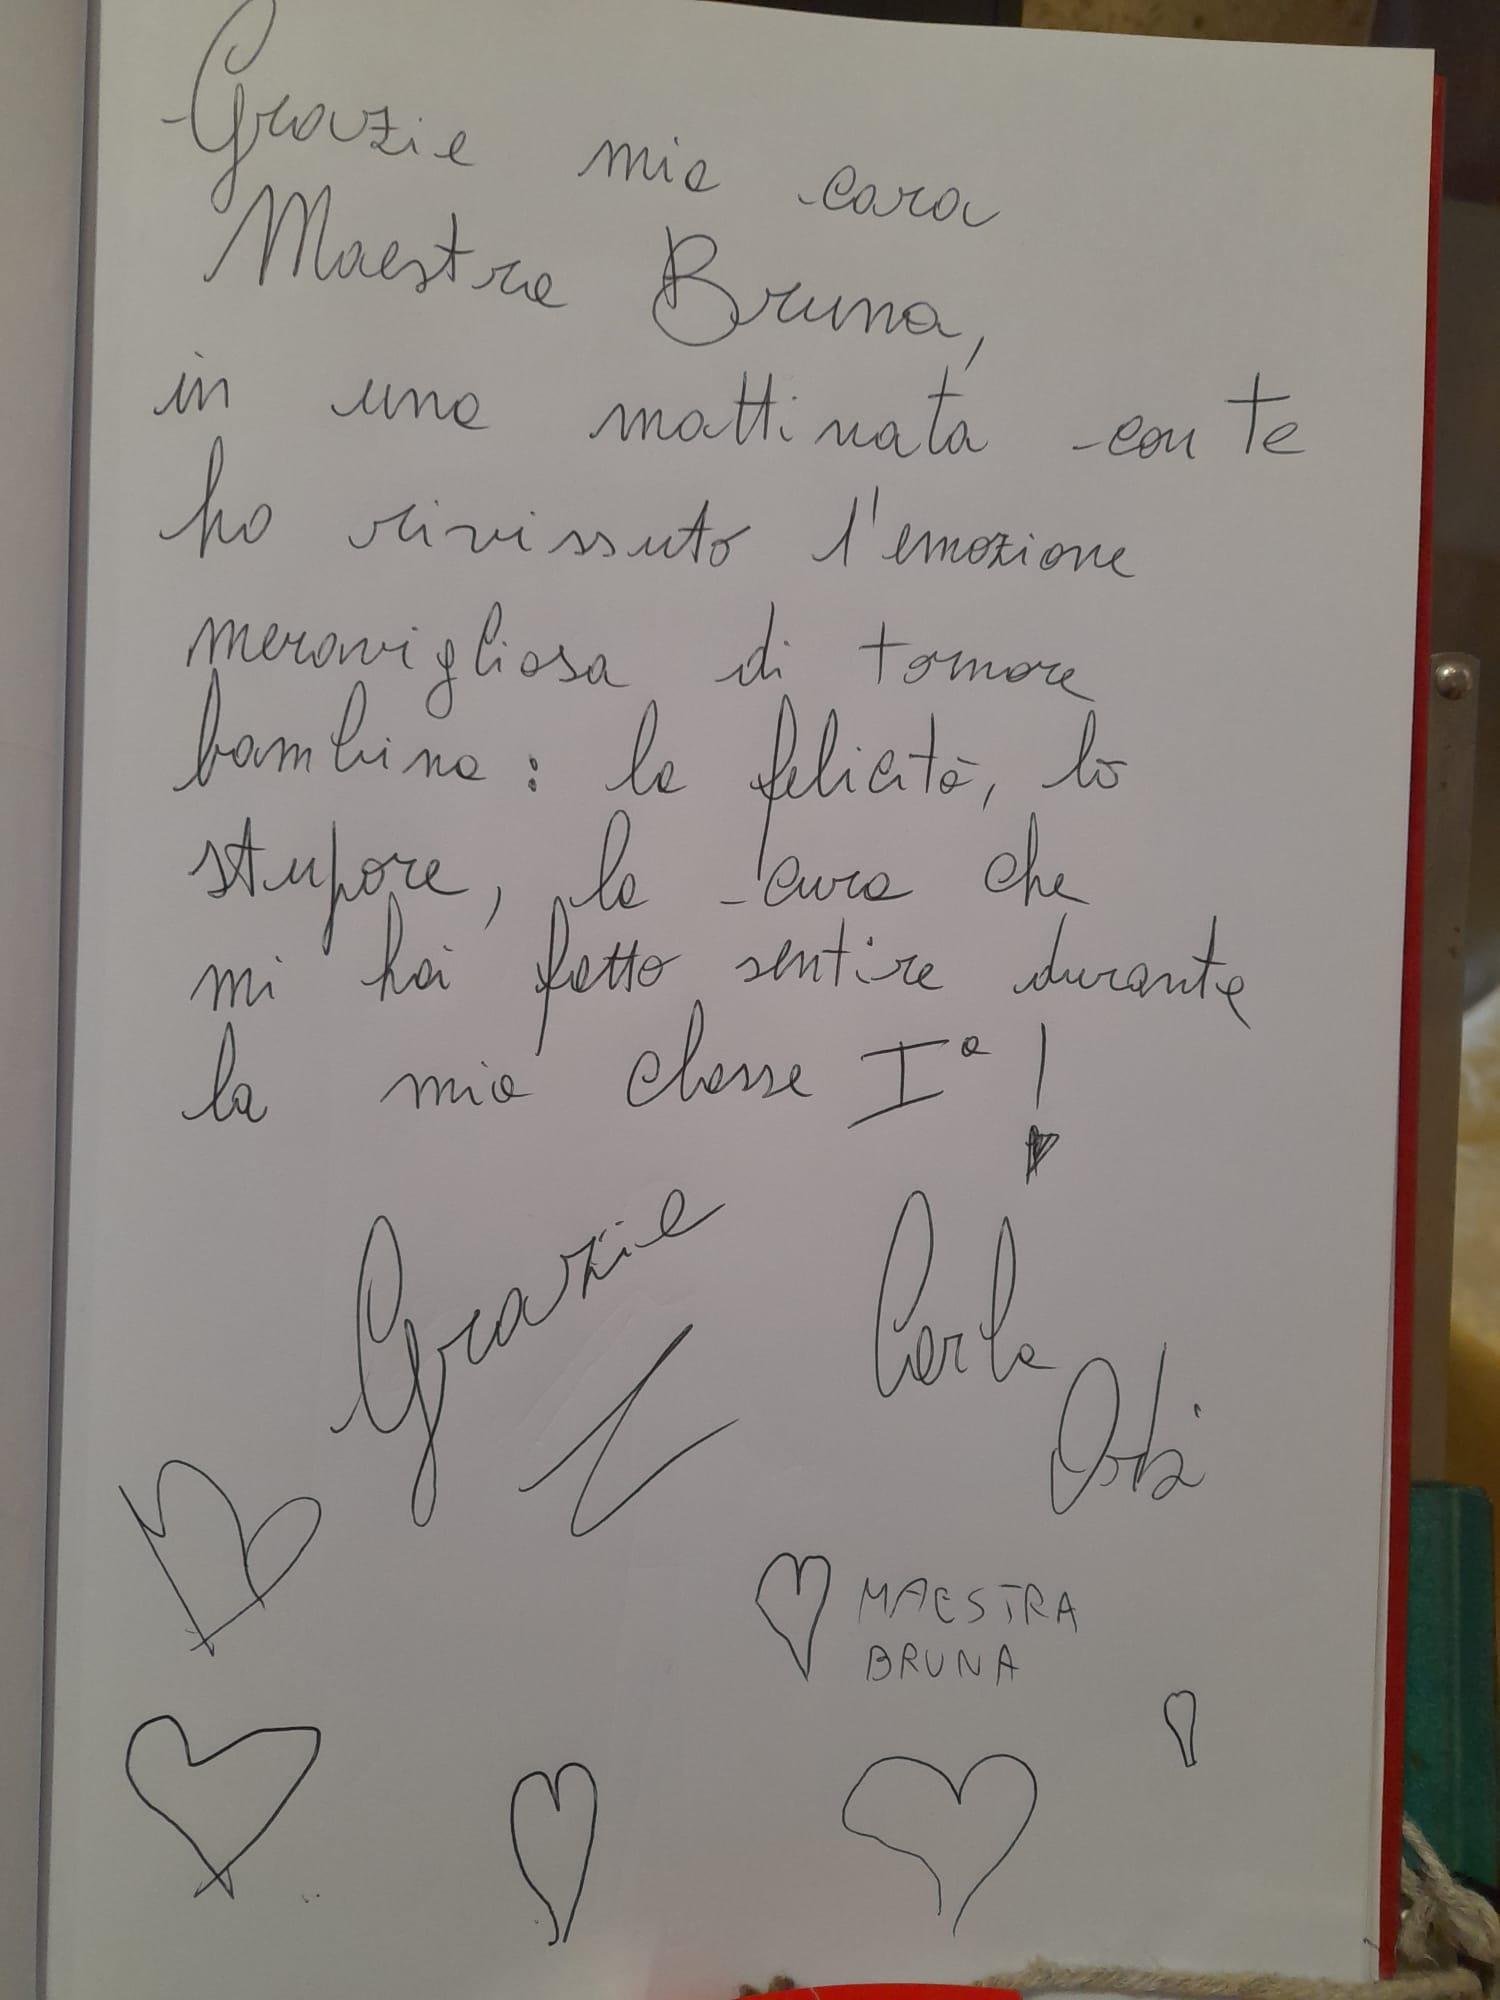 Grazie mia cara
Maestra Bruna,
in una mattinata con te
ho rivissuto l'emozione
meravigliosa di tornare
bambina: la felicità, lo
stupore, la cura che
mi hai fatto sentire durante
la mia classe Iª!
Grazie
Carla
MAESTRA
BRUNA